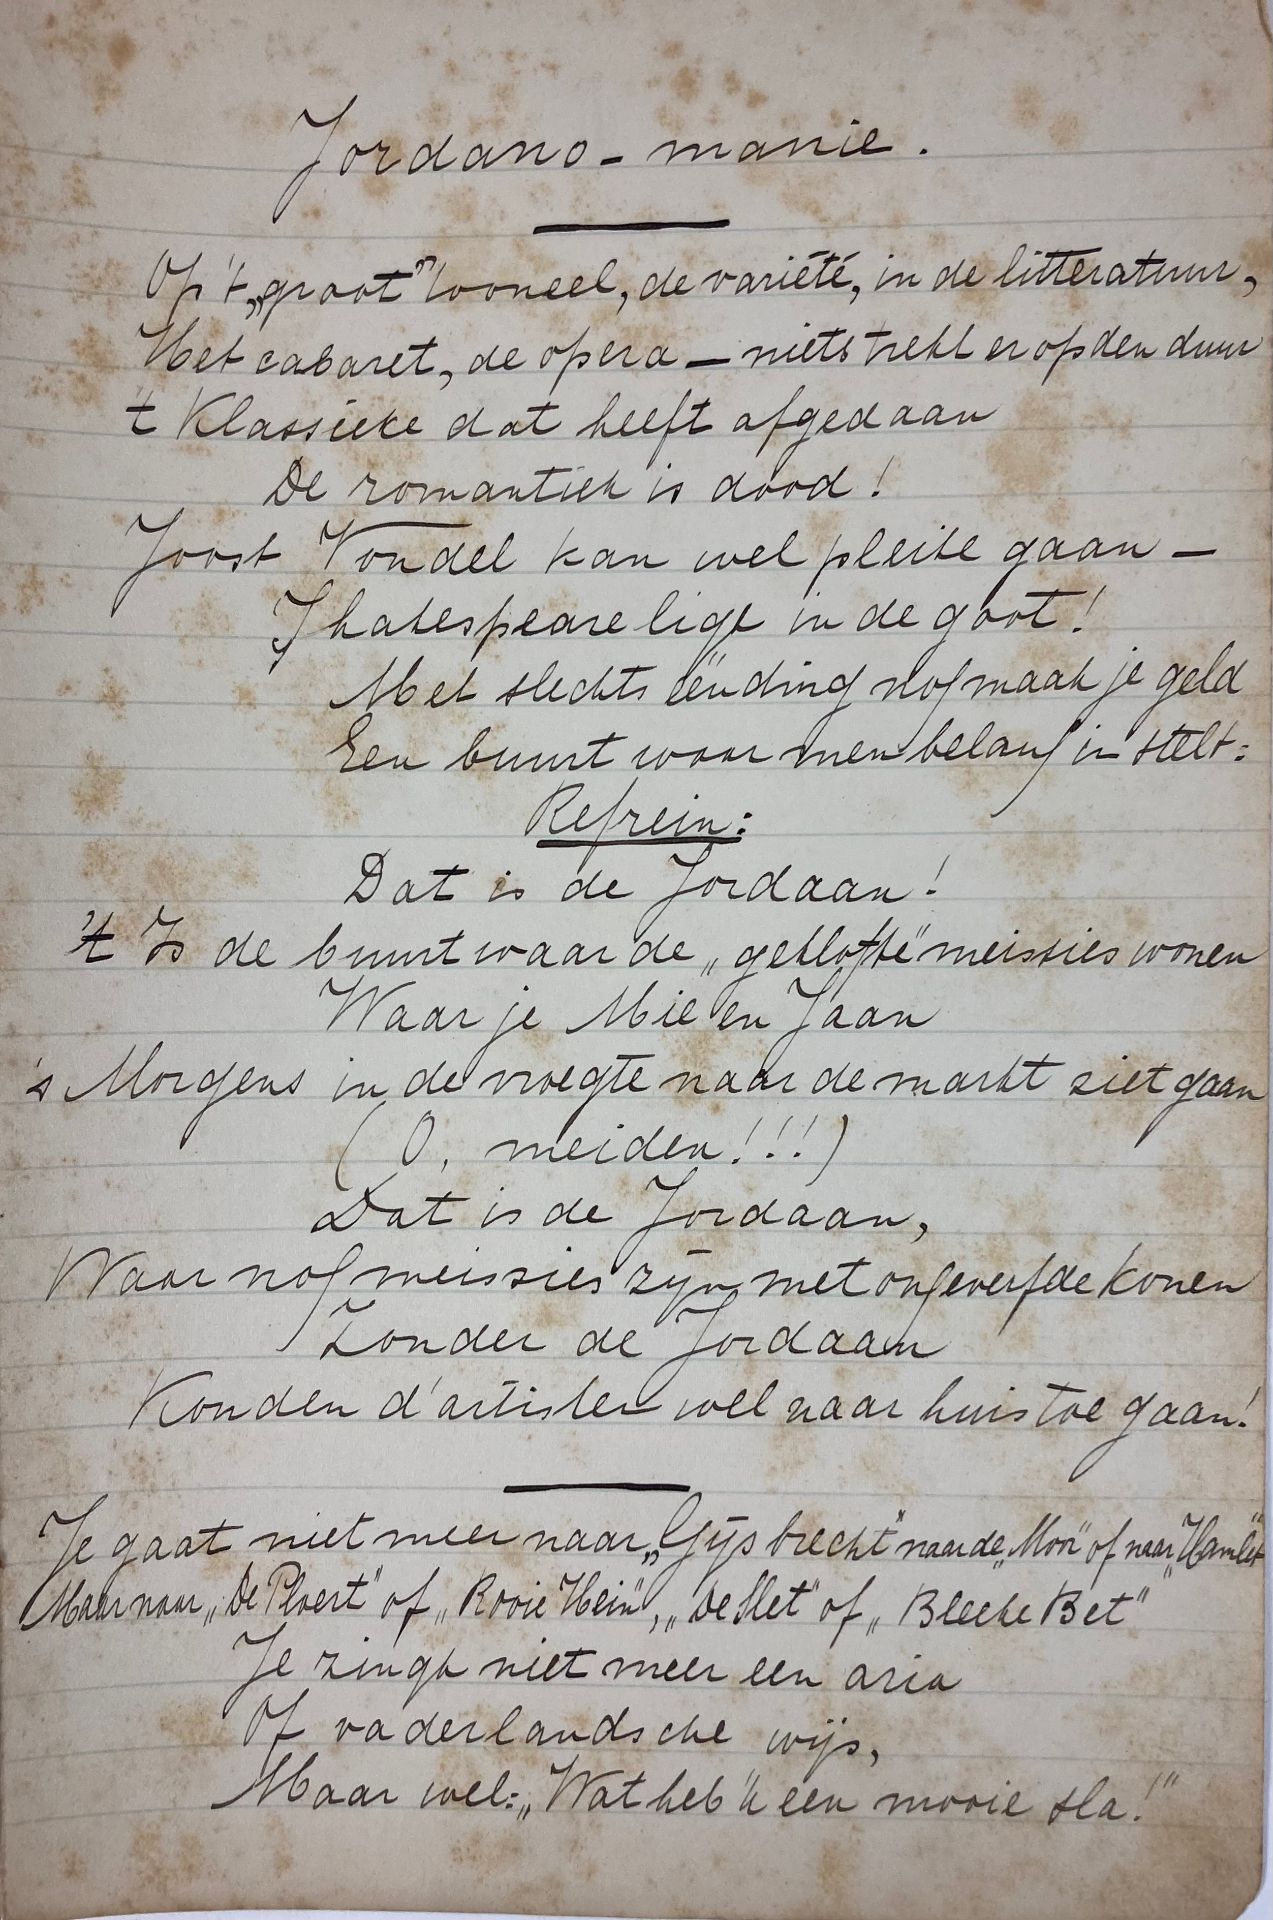 Jordano-manie.
Op 't „groot" tooneel, de variété, in de litteratuur,
Het cabaret, de opera — niets trekt er op den duur
't Klassieke dat heeft afgedaan
De romantiek is dood!
Joost Vondel kan wel pleite gaan —
Shakespeare ligt in de goot!
Met slechts één ding nog maak je geld
Een buurt waar men belang in stelt:
Refrein:
Dat is de Jordaan!
't Is de buurt waar de „gekloffte" meissies wonen
Waar je Mie en Jaan
's Morgens in de vroegte naar de markt ziet gaan
(O, meiden!!!)
Dat is de Jordaan,
Waar nog meissies zijn met ongeverfde konen
Zonder de Jordaan
Konden d'artisten wel naar huis toe gaan!
Je gaat niet meer naar „Gijsbrecht" naar de „Moor" of naar „Hamlet"
Maar naar „De Ploert" of „Rooie Hein", „De Slet" of „Bleeke Bet"
Je zingt niet meer een aria
Of vaderlandsche wijs,
Maar wel: „Wat heb 'k een mooie sla!"